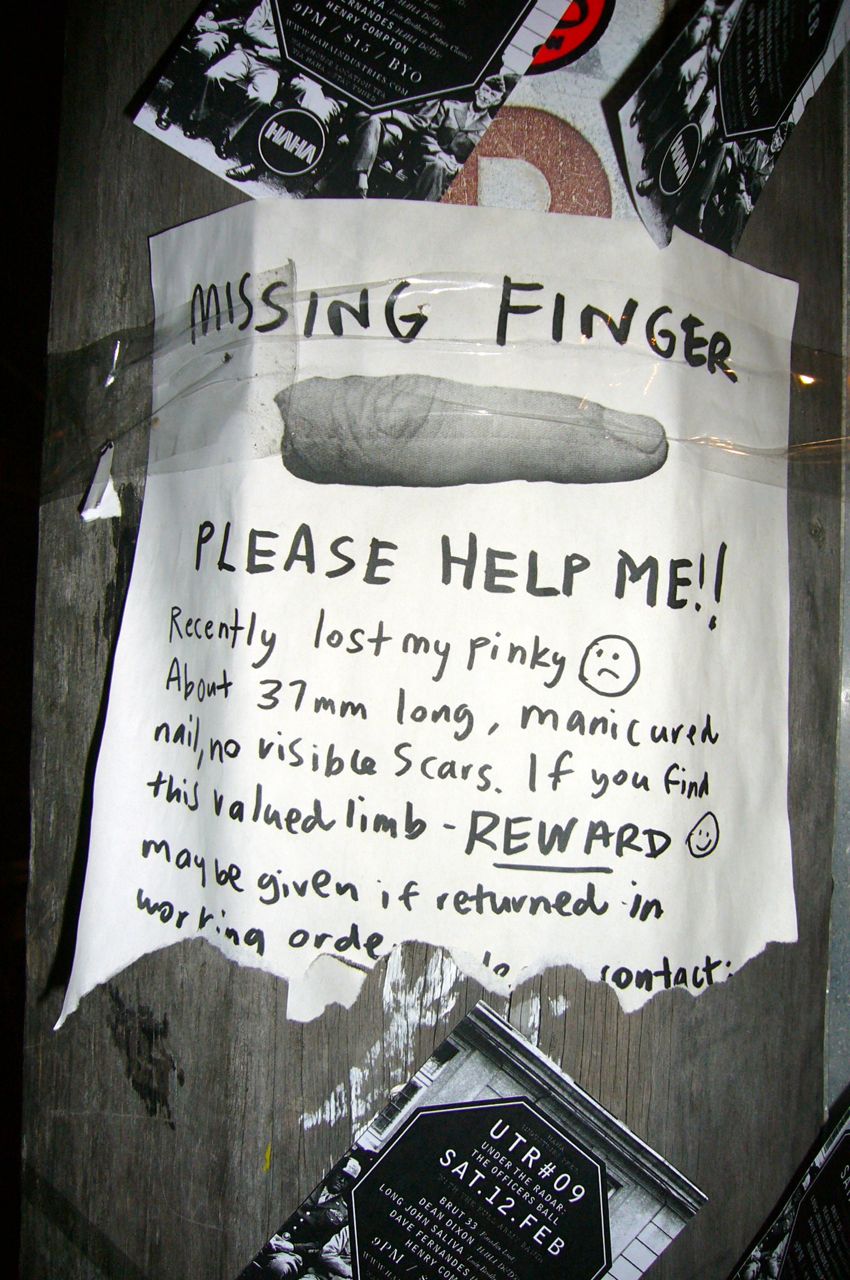 HENRY COMPTON
9PM / $15 / BYO
WWW.HAHAINDUSTRIES.COM
HAHA
HAHA
MISSING FINGER
PLEASE HELP ME!!
Recently lost my pinky
About 37mm long, manicured
nail, no visible scars. If you find
this valued limb - REWARD
may be given if returned in
working orde
contact:
UTR#09
UNDER THE RADAR:
THE OFFICERS BALL
SAT.12.FEB
BRUT 33
DEAN DIXON
LONG JOHN SALIVA
DAVE FERNANDES
HENRY COM
9PM / $15